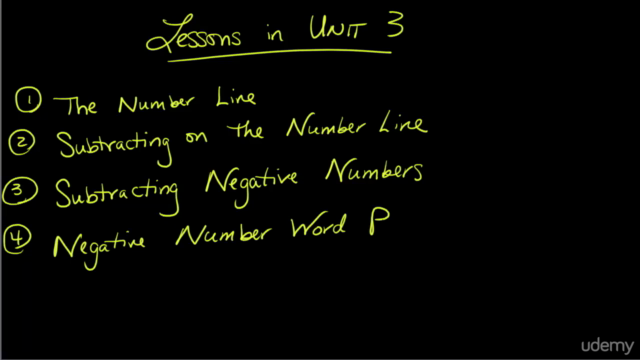 Lessons in UNIT 3
① The Number Line
② Subtracting on the Number Line
③ Subtracting Negative Numbers
④ Negative Number Word P
udemy